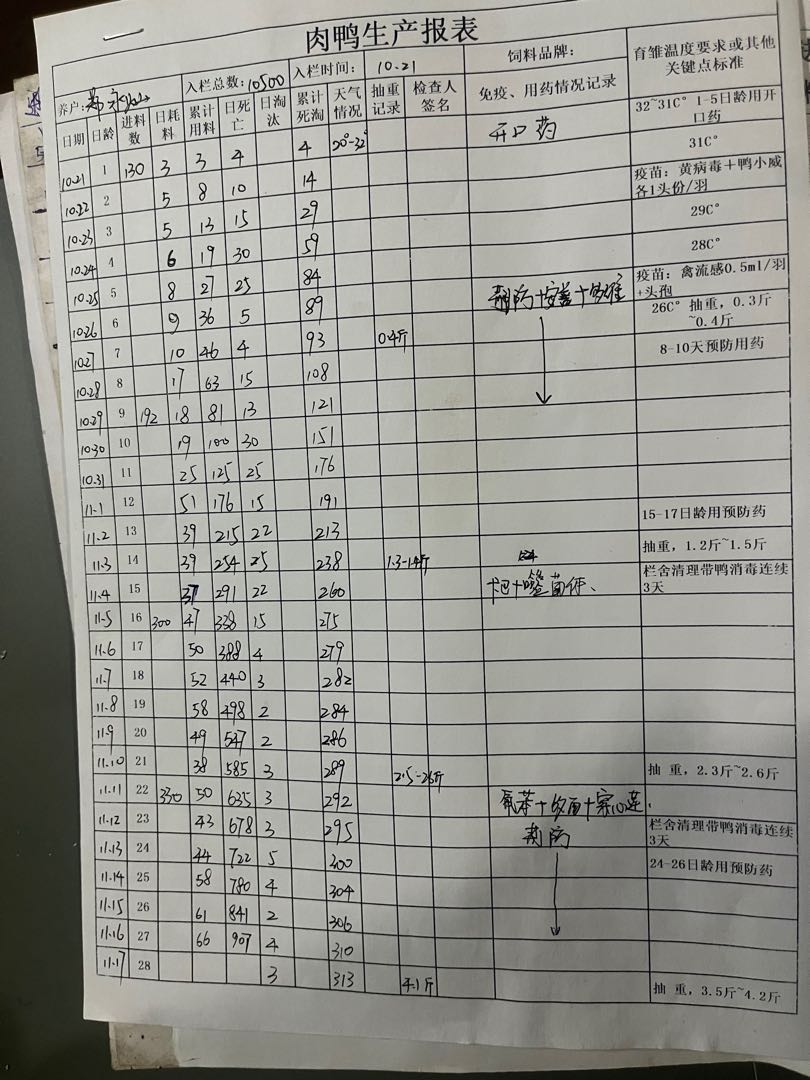 肉鸭生产报表
养户: 入栏总数: 10500 入栏时间: 10.21 饲料品牌: 育雏温度要求或其他关键点标准
日期 日龄 进料数 日耗料 累计用料 日死亡 日淘汰 累计死淘 天气情况 抽重记录 检查人签名 免疫、用药情况记录
10.21 1 130 3 3 4 4 20°-32° 开口药 32~31C° 1-5日龄用开口药
10.22 2 5 8 10 14 31C°
10.23 3 5 13 15 29 疫苗: 黄病毒+鸭小威各1头份/羽
10.24 4 6 19 30 59 29C°
10.25 5 8 27 25 84 28C°
10.26 6 9 36 5 89 疫苗: 禽流感0.5ml/羽+头孢
10.27 7 10 46 4 93 0.4斤 26C° 抽重, 0.3斤~0.4斤
10.28 8 17 63 15 108 8-10天预防用药
10.29 9 192 18 81 13 121
10.30 10 19 100 30 151
10.31 11 25 125 25 176
11.1 12 51 176 15 191
11.2 13 39 215 22 213 15-17日龄用预防药
11.3 14 39 254 25 238 1.3-1.4斤 抽重, 1.2斤~1.5斤
11.4 15 37 291 22 260 栏舍清理带鸭消毒连续3天
11.5 16 300 47 338 15 275
11.6 17 50 388 4 279
11.7 18 52 440 3 282
11.8 19 58 498 2 284
11.9 20 49 547 2 286
11.10 21 38 585 3 289 2.5-2.6斤 抽 重, 2.3斤~2.6斤
11.11 22 330 50 635 3 292
11.12 23 43 678 3 295 栏舍清理带鸭消毒连续3天
11.13 24 44 722 5 300 24-26日龄用预防药
11.14 25 58 780 4 304
11.15 26 61 841 2 306
11.16 27 66 907 4 310
11.17 28 3 313 4.1斤 抽 重, 3.5斤~4.2斤